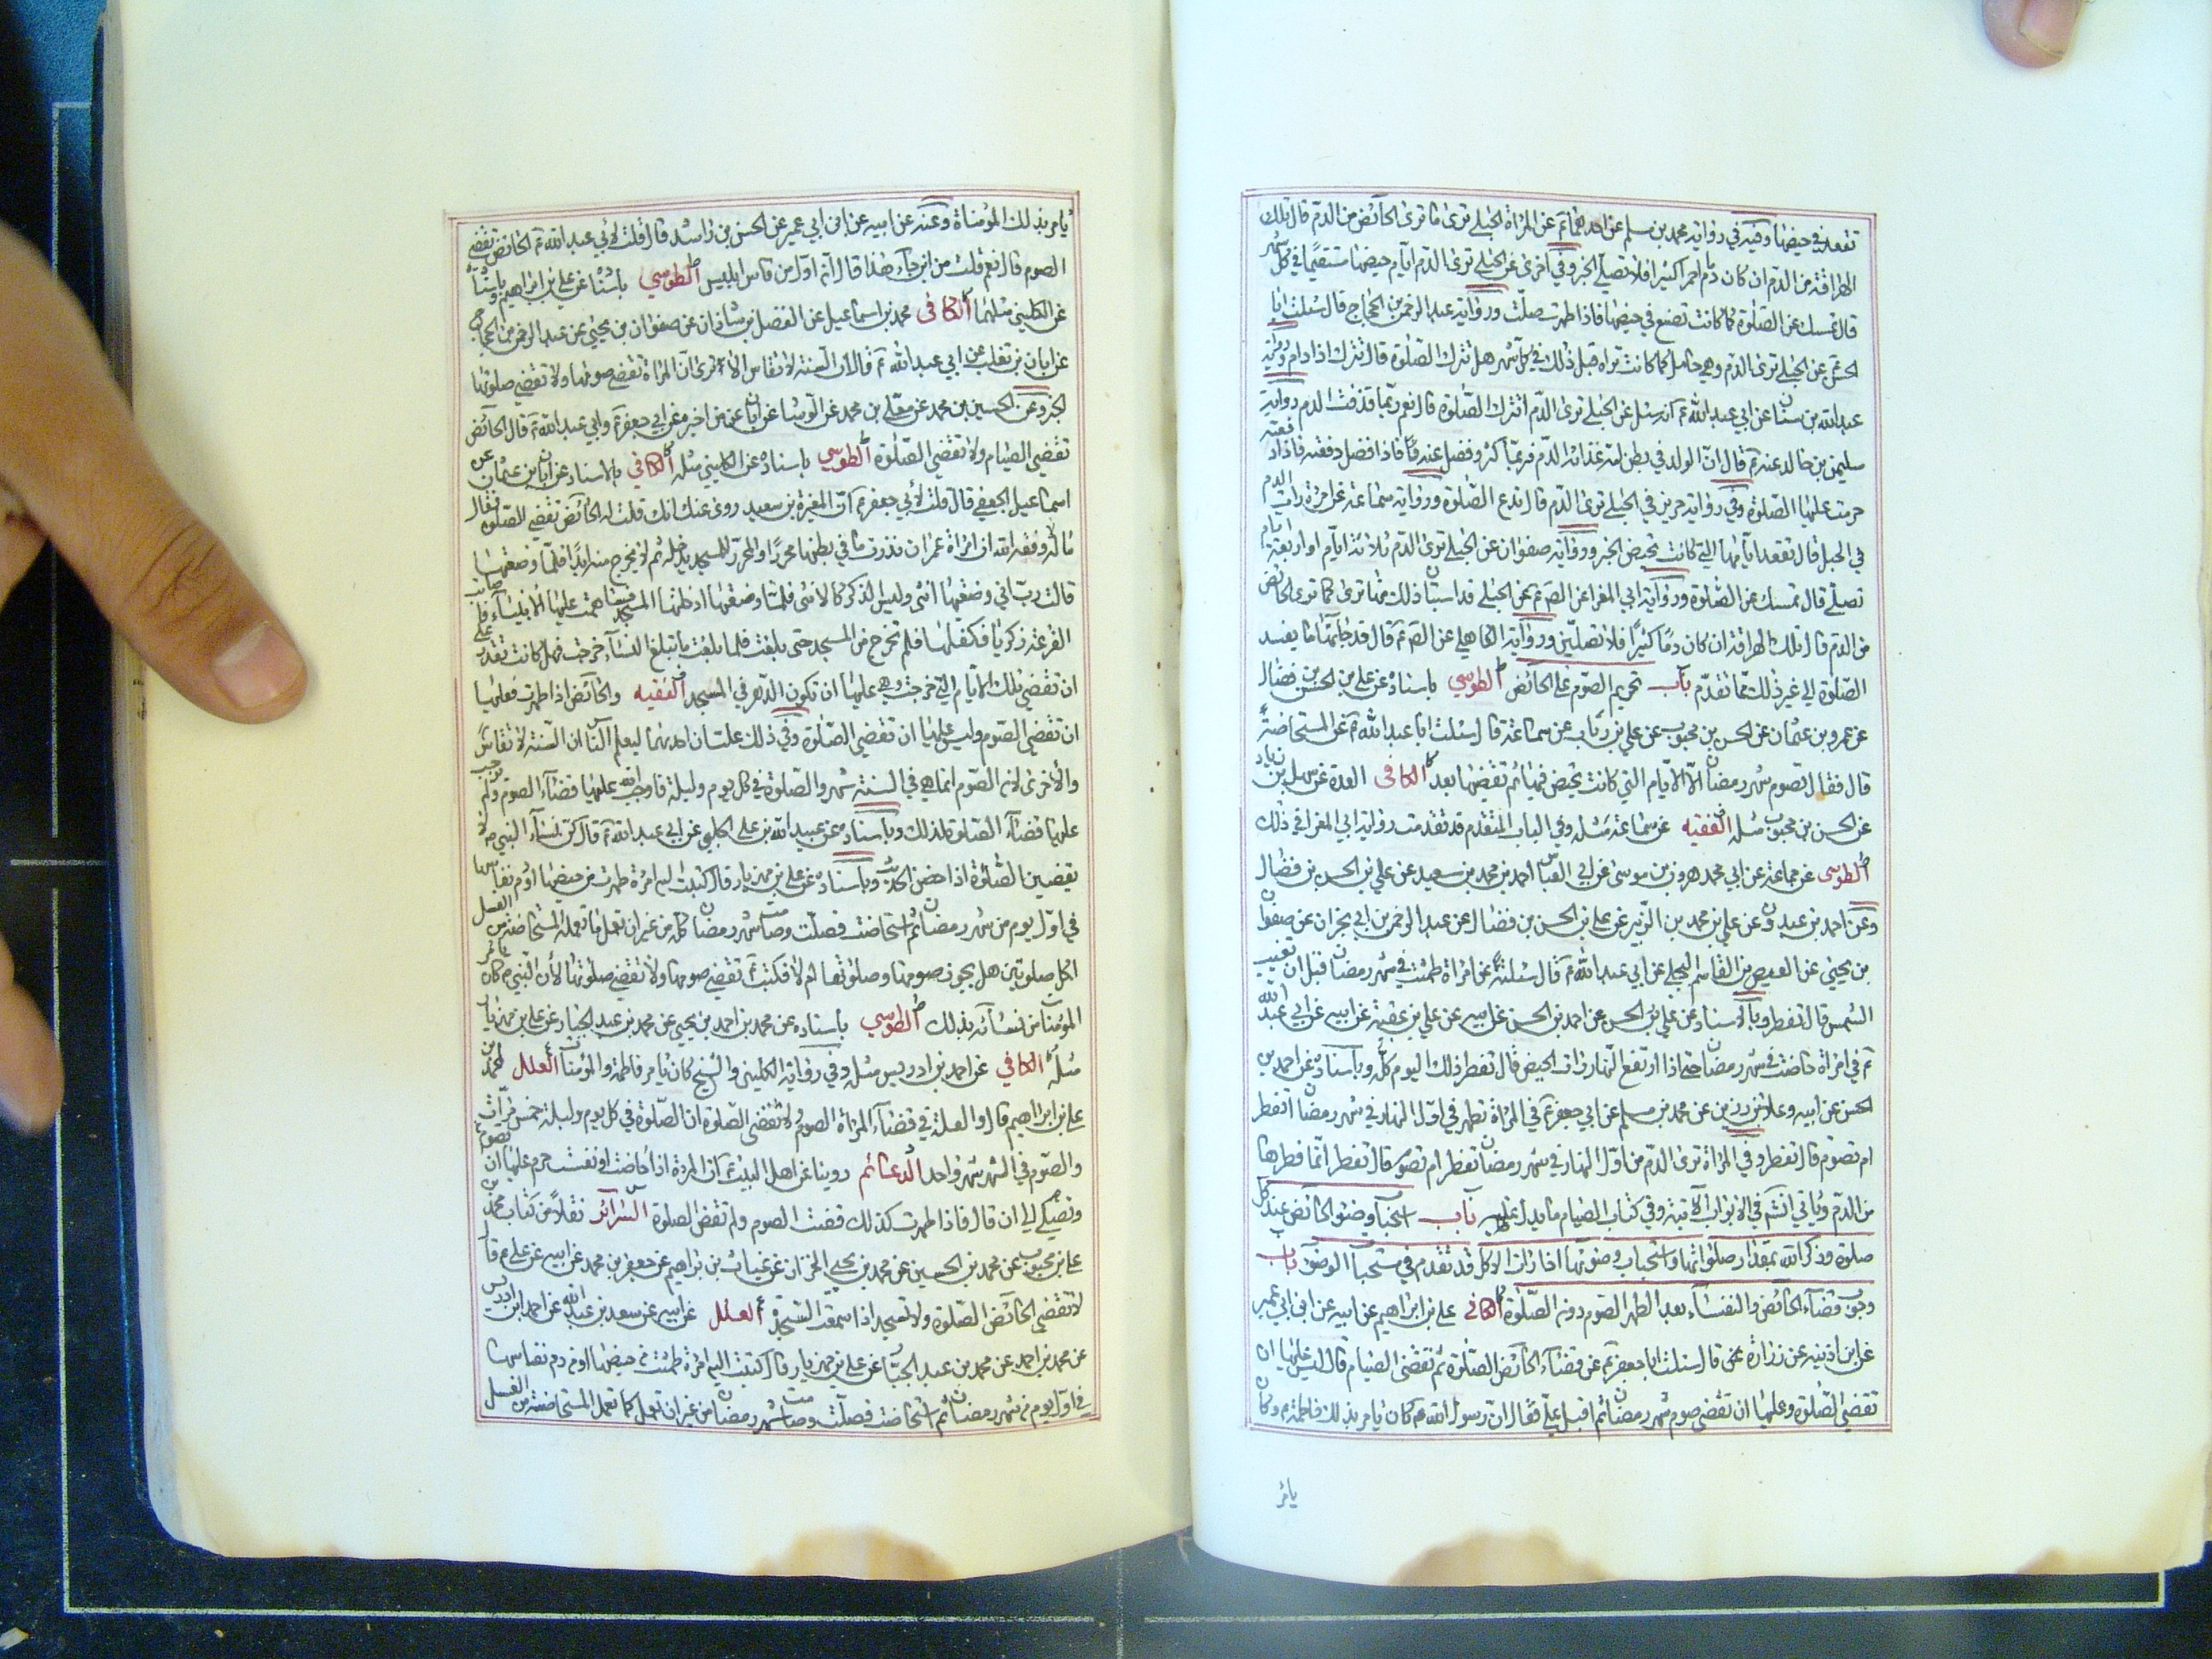 تقعد في حيضها وفيه في رواية محمد بن مسلم عن احدهما ع عن المراة الحبلى ترى ما ترى الحائض من الدم قال تلك
الهراقة من الدم ان كان دما احمر كثيرا فلا تصلي الخبر وفي اخرى عن الحبلى ترى الدم ايام حيضها مستقيما في كل شهر
قال تمسك عن الصلوة كما كانت تصنع في حيضها فاذا طهرت صلت ورواية عبد الرحمن بن الحجاج قال سئلت ابا
الحسن ع عن الحبلى ترى الدم وهي حامل كما كانت تراه قبل ذلك في كل شهر هل تترك الصلوة قال تترك اذا دام ورواية
عبد الله بن سنان عن ابي عبد الله ع انه سئل عن الحبلى ترى الدم اتترك الصلوة قال نعم ربما قذفت الدم ورواية
سليمن بن خالد عنه ع قال ان الولد في بطن امه غذائه الدم فربما كثر وفضل عنه فاذا فضل دفقته فاذا دفقته
حرمت عليها الصلوة وفي رواية حريز في الحبلى ترى الدم قال تدع الصلوة ورواية سماعة عن امرءة رات الدم
في الحبل قال تقعد ايامها التي كانت تحيض الخبر ورواية صفوان عن الحبلى ترى الدم ثلاثة ايام او اربعة ايام
تصلي قال تمسك عن الصلوة ورواية ابي المغرا عن الصم ع عن الحبلى قد استبان ذلك منها ترى كما ترى الحائض
من الدم قال تلك الهراقة ان كان دما كثيرا فلا تصلين ورواية الكاهلي عن الصم ع قال قد جائها ما يفسد
الصلوة الى غير ذلك مما تقدم باب تحريم الصوم على الحائض الطوسي باسناده عن علي بن الحسن بن فضال
عن عمرو بن عثمان عن الحسن بن محبوب عن علي بن رئاب عن سماعة قال سئلت ابا عبد الله ع عن المستحاضة
قال فقال تصوم شهر رمضان الا الايام التي كانت تحيض فيها ثم تقضيها بعد الكافي العدة عن سهل بن زياد
عن الحسن بن محبوب مثله الفقيه عن سماعة مثله وفي الباب المتقدم قد تقدمت رواية ابي المغرا في ذلك
الطوسي عن جماعة عن ابي محمد هرون بن موسى عن ابي العباس احمد بن محمد بن سعيد عن علي بن الحسن بن فضال
وعن احمد بن عبدون عن علي بن محمد بن الزبير عن علي بن الحسن بن فضال عن عبد الرحمن بن ابي نجران عن صفوان
بن يحيى عن العيص بن القاسم البجلي عن ابي عبد الله ع قال سئلته عن امراة طمثت في شهر رمضان قبل ان تغيب
الشمس قال تفطر وبالاسناد عن علي بن الحسن عن احمد بن الحسن عن ابيه عن علي بن عقبة عن ابيه عن ابي عبد الله
ع في امراة حاضت في شهر رمضان حتى اذا ارتفع النهار رات الحيض قال تفطر ذلك اليوم كله وباسناده عن احمد بن
الحسن عن ابيه وعلا بن رزين عن محمد بن مسلم عن ابي جعفر ع في المراة تطهر في اول النهار في شهر رمضان اتفطر
ام تصوم قال تفطر وفي المراة ترى الدم من اول النهار في شهر رمضان تفطر ام تصوم قال تفطر انما فطرها
من الدم وياتي انشم في الابواب الاتية وفي كتاب الصيام ما يدل عليه باب استحباب وضوء الحائض عند كل
صلوة وذكر الله بمقدار صلواتها واستحباب وضوئها اذا ارادت الاكل قد تقدم في مستحبات الوضوء باب
وجوب قضاء الحائض والنفساء بعد الطهر الصوم دون الصلوة الكافي علي بن ابراهيم عن ابيه عن ابن ابي عمير
عن ابن اذينة عن زرارة قال سئلت ابا جعفر ع عن قضاء الحائض الصلوة ثم تقضي الصيام قال ليس عليها ان
تقضي الصلوة وعليها ان تقضي صوم شهر رمضان ثم اقبل علي فقال ان رسول الله ص كان يامر بذلك فاطمة ع وكان
يامر
يامر بذلك المؤمنات وعنه عن ابيه عن ابن ابي عمير عن الحسن بن راشد قال قلت لابي عبد الله ع الحائض تقضي
الصوم قال نعم قلت من اين جاء هذا قال ان اول من قاس ابليس الطوسي باسناده عن علي بن ابراهيم وباسناده
عن الكليني مثلهما الكافي محمد بن اسماعيل عن الفضل بن شاذان عن صفوان بن يحيى عن عبد الرحمن بن الحجاج
عن ابان بن تغلب عن ابي عبد الله ع قال ان السنة لا تقاس الا ترى ان المراة تقضي صومها ولا تقضي صلوتها
الخبر وعن الحسين بن محمد عن معلى بن محمد عن الوشا عن ابان عمن اخبره عن ابي جعفر ع وابي عبد الله ع قال الحائض
تقضي الصيام ولا تقضي الصلوة الطوسي باسناده عن الكليني مثله الكافي بالاسناد عن ابان بن عثمان عن
اسماعيل الجعفي قال قلت لابي جعفر ع ان المغيرة بن سعيد روى عنك انك قلت له الحائض تقضي الصلوة فقال
ماله لا وفقه الله ان امراة عمران نذرت ما في بطنها محررا والمحرر للمسجد يدخله ثم لا يخرج منه ابدا فلما وضعتها
قالت رب اني وضعتها انثى وليس الذكر كالانثى فلما وضعتها ادخلتها المسجد فساهمت عليها الانبياء فاصابت
القرعة زكريا فكفلها فلم تخرج من المسجد حتى بلغت فلما بلغت ما تبلغ النساء خرجت فهل كانت تقدر على
ان تقضي تلك الايام التي خرجت وهي عليها ان تكون الدهر في المسجد الفقيه والحائض اذا طهرت فعليها
ان تقضي الصوم وليس عليها ان تقضي الصلوة وفي ذلك علتان احديهما ليعلم الناس ان السنة لا تقاس
والاخرى لان الصوم انما هي في السنة شهر والصلوة في كل يوم وليلة فاوجب الله عليها قضاء الصوم ولم يوجب
عليها قضاء الصلوة لذلك وباسناده عن عبيد الله بن علي الحلبي عن ابي عبد الله ع قال كن نساء النبي ص لا
تقضين الصلوة اذا حضن الحديث وباسناده عن علي بن مهزيار قال كتبت اليه امرءة طهرت من حيضها او دم نفاسها
في اول يوم من شهر رمضان ثم استحاضت فصلت وصامت شهر رمضان كله من غير ان تعمل ما تعمله المستحاضة من الغسل
لكل صلوتين هل يجوز صومها وصلوتها ام لا فكتب ع تقضي صومها ولا تقضي صلوتها لان النبي ص كان يامر
المؤمنات من نسائه بذلك الطوسي باسناده عن محمد بن احمد بن يحيى عن محمد بن عبد الجبار عن علي بن مهزيار
مثله الكافي عن احمد بن ادريس مثله وفي رواية الكليني والشيخ كان يامر فاطمة والمؤمنات العلل لمحمد بن
علي بن ابراهيم قال والعلة في قضاء المراة الصوم ولا تقضي الصلوة ان الصلوة في كل يوم وليلة خمس مرات
والصوم في الشهر شهر واحد الدعائم روينا عن اهل البيت ع ان المرءة اذا حاضت او نفست حرم عليها ان تصوم
وتصلي الى ان قال فاذا طهرت كذلك قضت الصوم ولم تقض الصلوة السرائر نقلا من كتاب محمد بن
علي بن محبوب عن محمد بن الحسين عن محمد بن يحيى الخزاز عن غياث بن ابراهيم عن جعفر بن محمد عن ابيه عن علي ع قال
لا تقضي الحائض الصلوة ولا تسجد اذا سمعت السجدة العلل عن ابيه عن سعد بن عبد الله عن احمد بن ادريس
عن محمد بن احمد عن محمد بن عبد الجبار عن علي بن مهزيار قال كتبت اليه امرءة طمثت من حيضها او من دم نفاسها
في اول يوم من شهر رمضان ثم استحاضت فصلت وصامت شهر رمضان من غير ان تعمل كما تعمل المستحاضة من الغسل